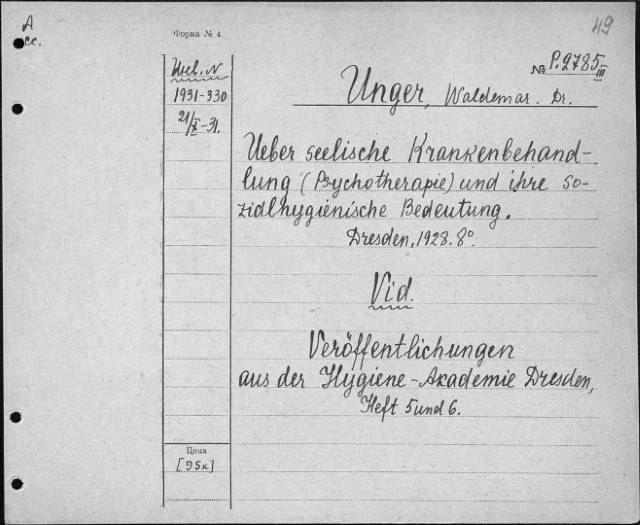 A
cc.
Форма № 4
49
Инв. N
1931-330
21/X-31.
№ P.2785
III
Unger, Waldemar. Dr.
Ueber seelische Krankenbehand-
lung (Psychotherapie) und ihre so-
zialhygienische Bedeutung.
Dresden, 1928. 8°.
Vid.
Veröffentlichungen
aus der Hygiene-Akademie Dresden,
Heft 5 und 6.
Цена
[95к]